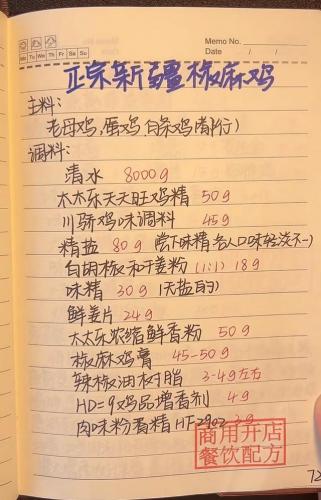 Memo No.
Mo Tu We Th Fr Sa Su
Date / /
正宗新疆椒麻鸡
主料:
老母鸡,蛋鸡,白条鸡(都行)
调料:
清水 8000g
太太乐天天旺鸡精 50g
川骄鸡味调料 45g
精盐 80g (尝下味精,各人口味轻淡不一)
白胡椒和干姜粉(1:1) 18g
味精 30g (无盐的)
鲜姜片 24g
太太乐浓缩鲜香粉 50g
椒麻鸡膏 45-50g
辣椒油树脂 3-4g左右
HD=9鸡品增香剂 4g
肉味粉香精HF2902 3g
商用开店
餐饮配方
72